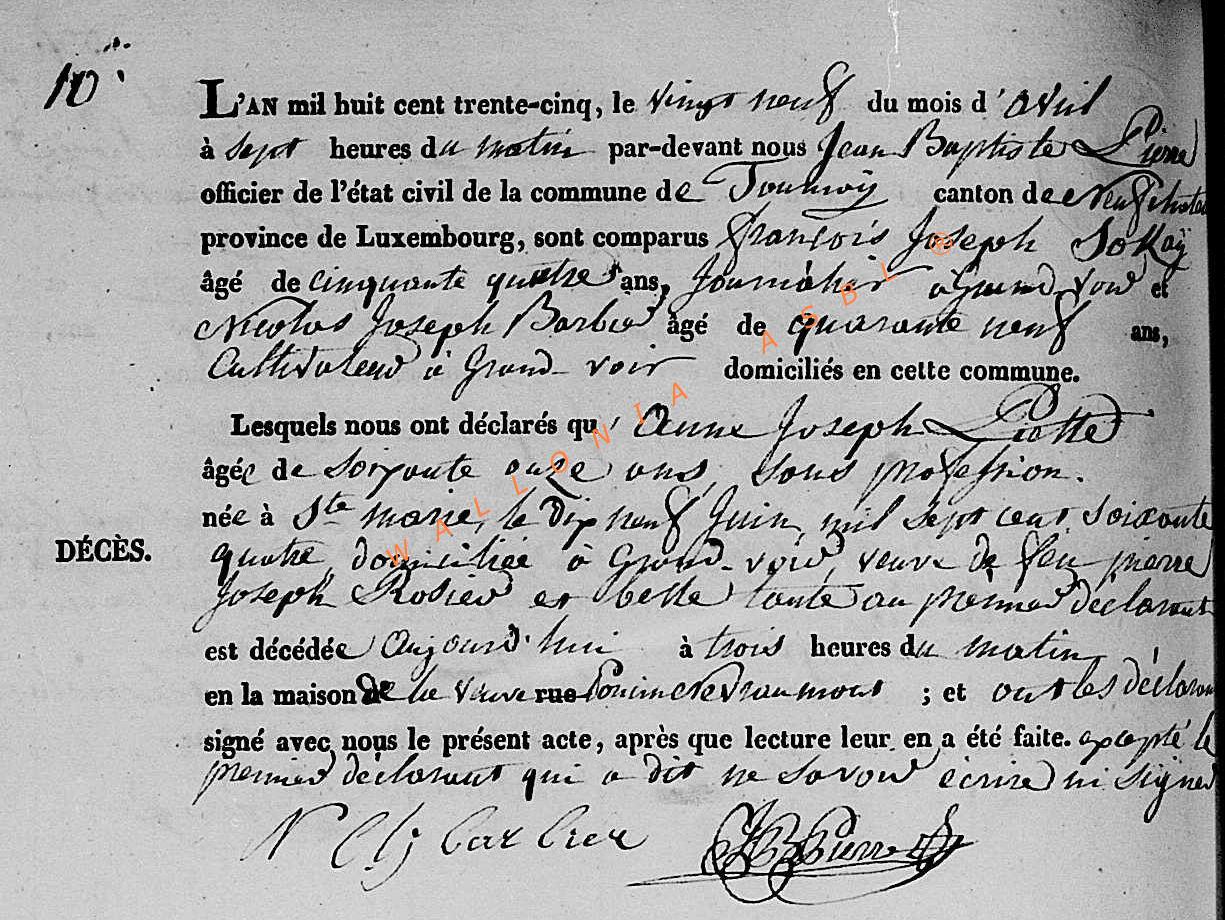 10.
L'AN mil huit cent trente-cinq, le vingt neuf du mois d'avril
à sept heures du matin par-devant nous Jean Baptiste Pierre
officier de l'état civil de la commune de Tournay canton de Neufchateau
province de Luxembourg, sont comparus françois Joseph Sokaÿ
âgé de cinquante quatre ans, Journalier à Grand voir et
Nicolas Joseph Barbier âgé de quarante neuf ans,
Cultivateur à Grand-voir domiciliés en cette commune.
Lesquels nous ont déclarés qu'Anne Joseph Piette
âgée de soixante onze ans, sans profession.
née à Ste marie, le dix neuf Juin mil sept cent soixante
DÉCÈS.
quatre, domiciliée à Grand-voir, veuve de feu pierre
Joseph Rosier et belle tante au premier déclarant
est décédée aujourd'hui à trois heures du matin
en la maison de la veuve rue ; et ont les déclarans
signé avec nous le présent acte, après que lecture leur en a été faite. excepté le
premier déclarant qui a dit ne savoir écrire ni signer
N barbier JB Pierre
WALLONIA ASBL ®